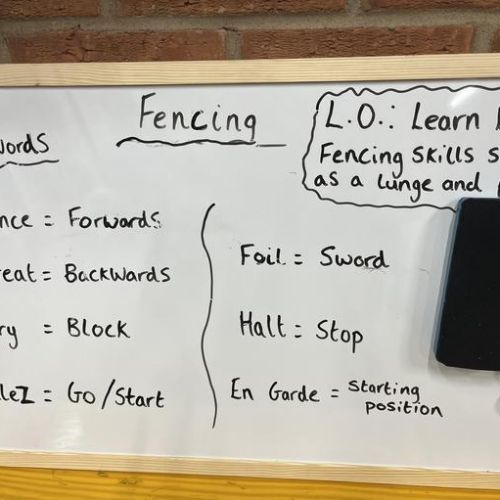 Fencing
L.O.: Learn
Fencing Skills s
as a lunge and
words
nce = Forwards
reat = Backwards
ry = Block
lleZ = Go/Start
Foil = Sword
Halt = Stop
En Garde = starting
position